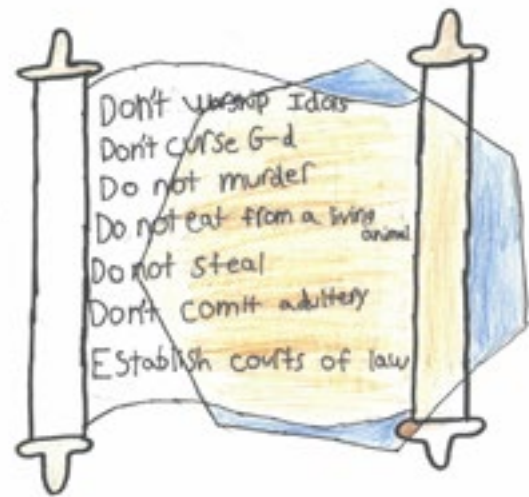 Don't worship Idols
Don't curse G-d
Do not murder
Do not eat from a living animal
Do not steal
Don't comit adultery
Establish courts of law